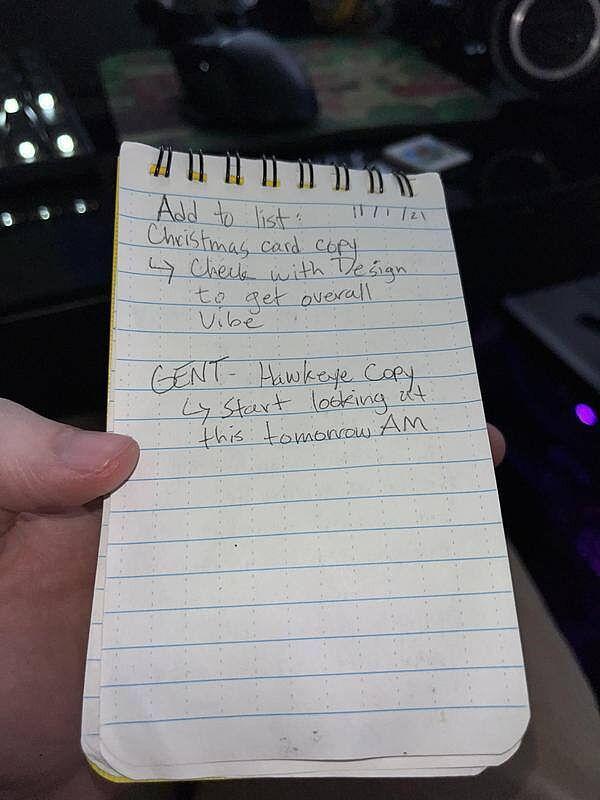 Add to list: 11/1/21
Christmas card copy
↳ Check with Design
to get overall
Vibe
GENT- Hawkeye Copy
↳ Start looking at
this tomorrow AM